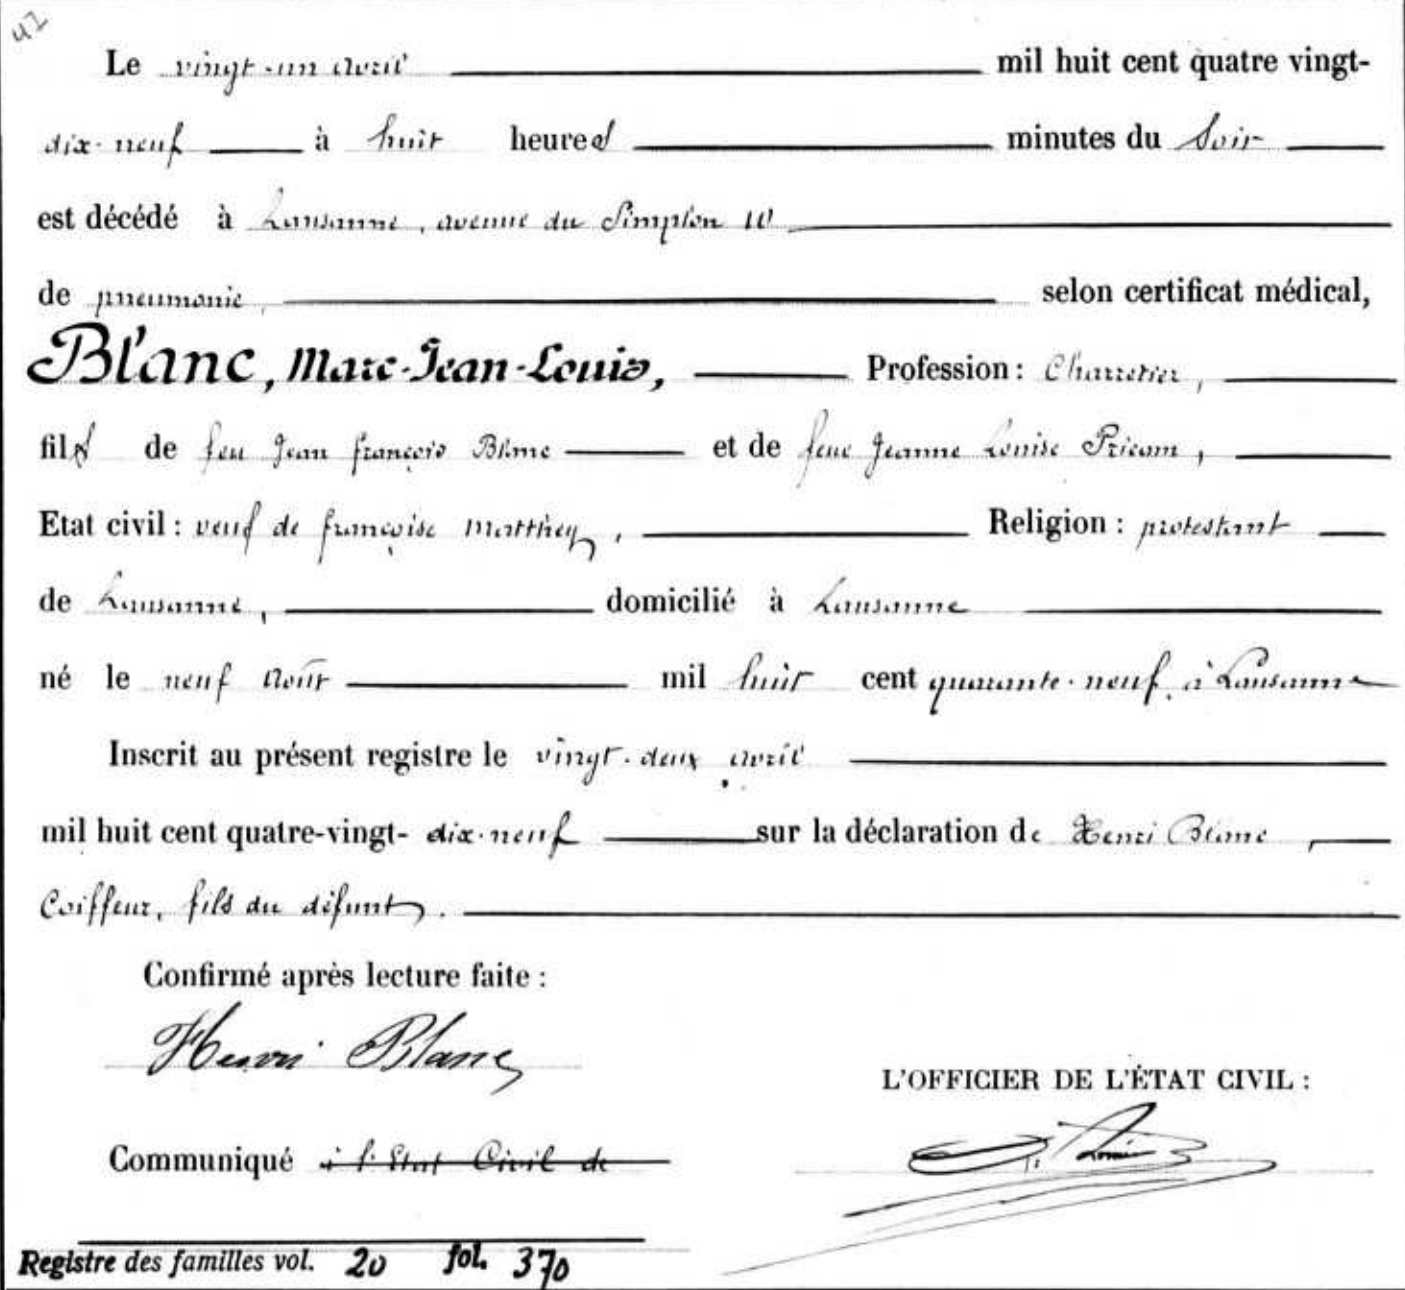 42
Le vingt-un avril mil huit cent quatre vingt-
dix-neuf à huit heures minutes du soir
est décédé à Lausanne, avenue du Simplon 10
de pneumonie, selon certificat médical,
Blanc, Marc-Jean-Louis, Profession: Charretier,
fils de feu Jean François Blanc et de feue Jeanne Louise Pricam,
Etat civil: veuf de Françoise Matthey, Religion: protestant
de Lausanne, domicilié à Lausanne
né le neuf Août mil huit cent quarante-neuf, à Lausanne
Inscrit au présent registre le vingt-deux avril
mil huit cent quatre-vingt-dix-neuf sur la déclaration de Henri Blanc,
Coiffeur, fils du défunt.
Confirmé après lecture faite:
Henri Blanc
L'OFFICIER DE L'ÉTAT CIVIL:
Communiqué à l'Etat Civil de
Registre des familles vol. 20 fol. 370